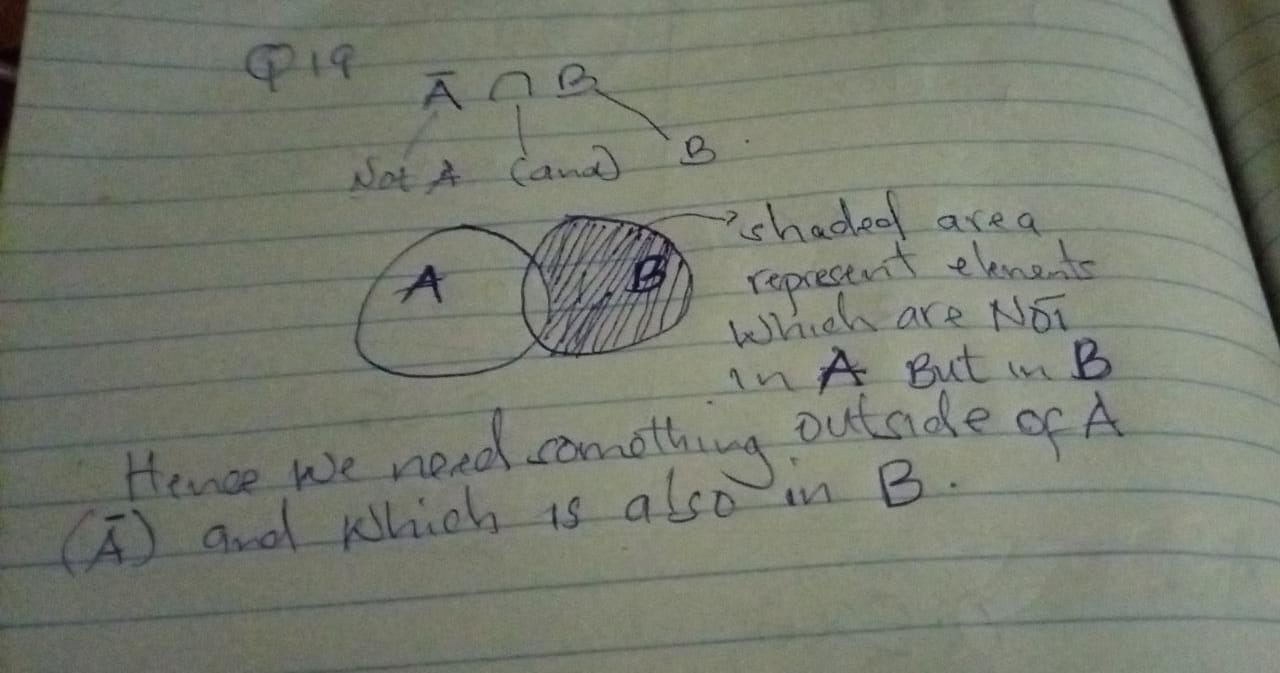 Q19
Ā ∩ B
Not A (and) B.
A
B
shaded area
represent elements
which are NOT
in A But in B
Hence we need something outside of A
(Ā) and which is also in B.